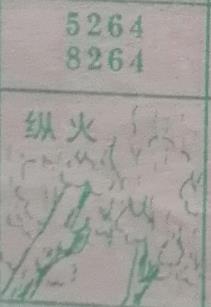 5264
8264
纵火